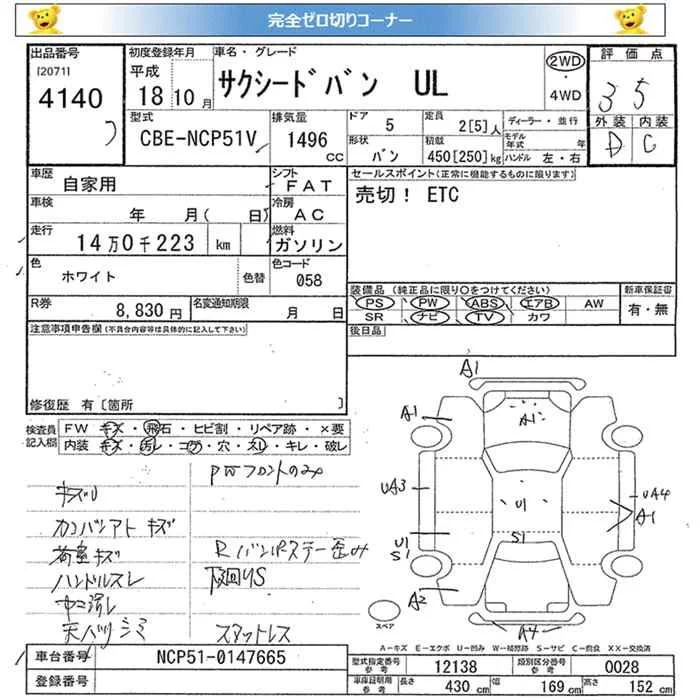 完全ゼロ切りコーナー
出品番号 [2071] 4140
初度登録年月 平成 18 10 月
車名・グレード サクシードバン UL
2WD ・ 4WD
評価点 3 5
外装 D 内装 C
型式 CBE-NCP51V
排気量 1496 cc
ドア 5
形状 バン
定員 2[5]人
積載 450[250]kg
ディーラー・並行
モデル年式 年
ハンドル 左・右
車歴 自家用
シフト FAT
車検 年 月( 日)
冷房 AC
走行 14万0千223 km
燃料 ガソリン
色 ホワイト 色替
色コード 058
R券 8,830円
名変通知期限 月 日
セールスポイント(正常に機能するものに限ります)
売切! ETC
装備品 (純正品に限り○をつけてください)
PS PW ABS エアB AW
SR ナビ TV カワ
新車保証書 有・無
後日品
注意事項申告欄(不具合内容等は具体的に記入して下さい)
修復歴 有〔箇所 〕
検査員記入欄
FW キズ・飛石・ヒビ割・リペア跡・×要
内装 キズ・汚レ・コゲ・穴・スレ・キレ・破レ
PWフロントのみ
キズU
カンバンアト キズ
荷室キズ
ハンドルスレ
Rバンパステー歪み
下廻りS
天ハリシミ
スタットレス
A1
A1
A1
UA3
U1
UA4
A1
U1
S1
S1
A2
A4
スペア
A-キズ E-エクボ U-凹み W-補修跡 S-サビ C-腐食 XX-交換済
車台番号 NCP51-0147665
登録番号
型式指定番号 参考 12138
類別区分番号 参考 0028
車庫証明用 参考 長さ 430 cm 幅 169 cm 高さ 152 cm